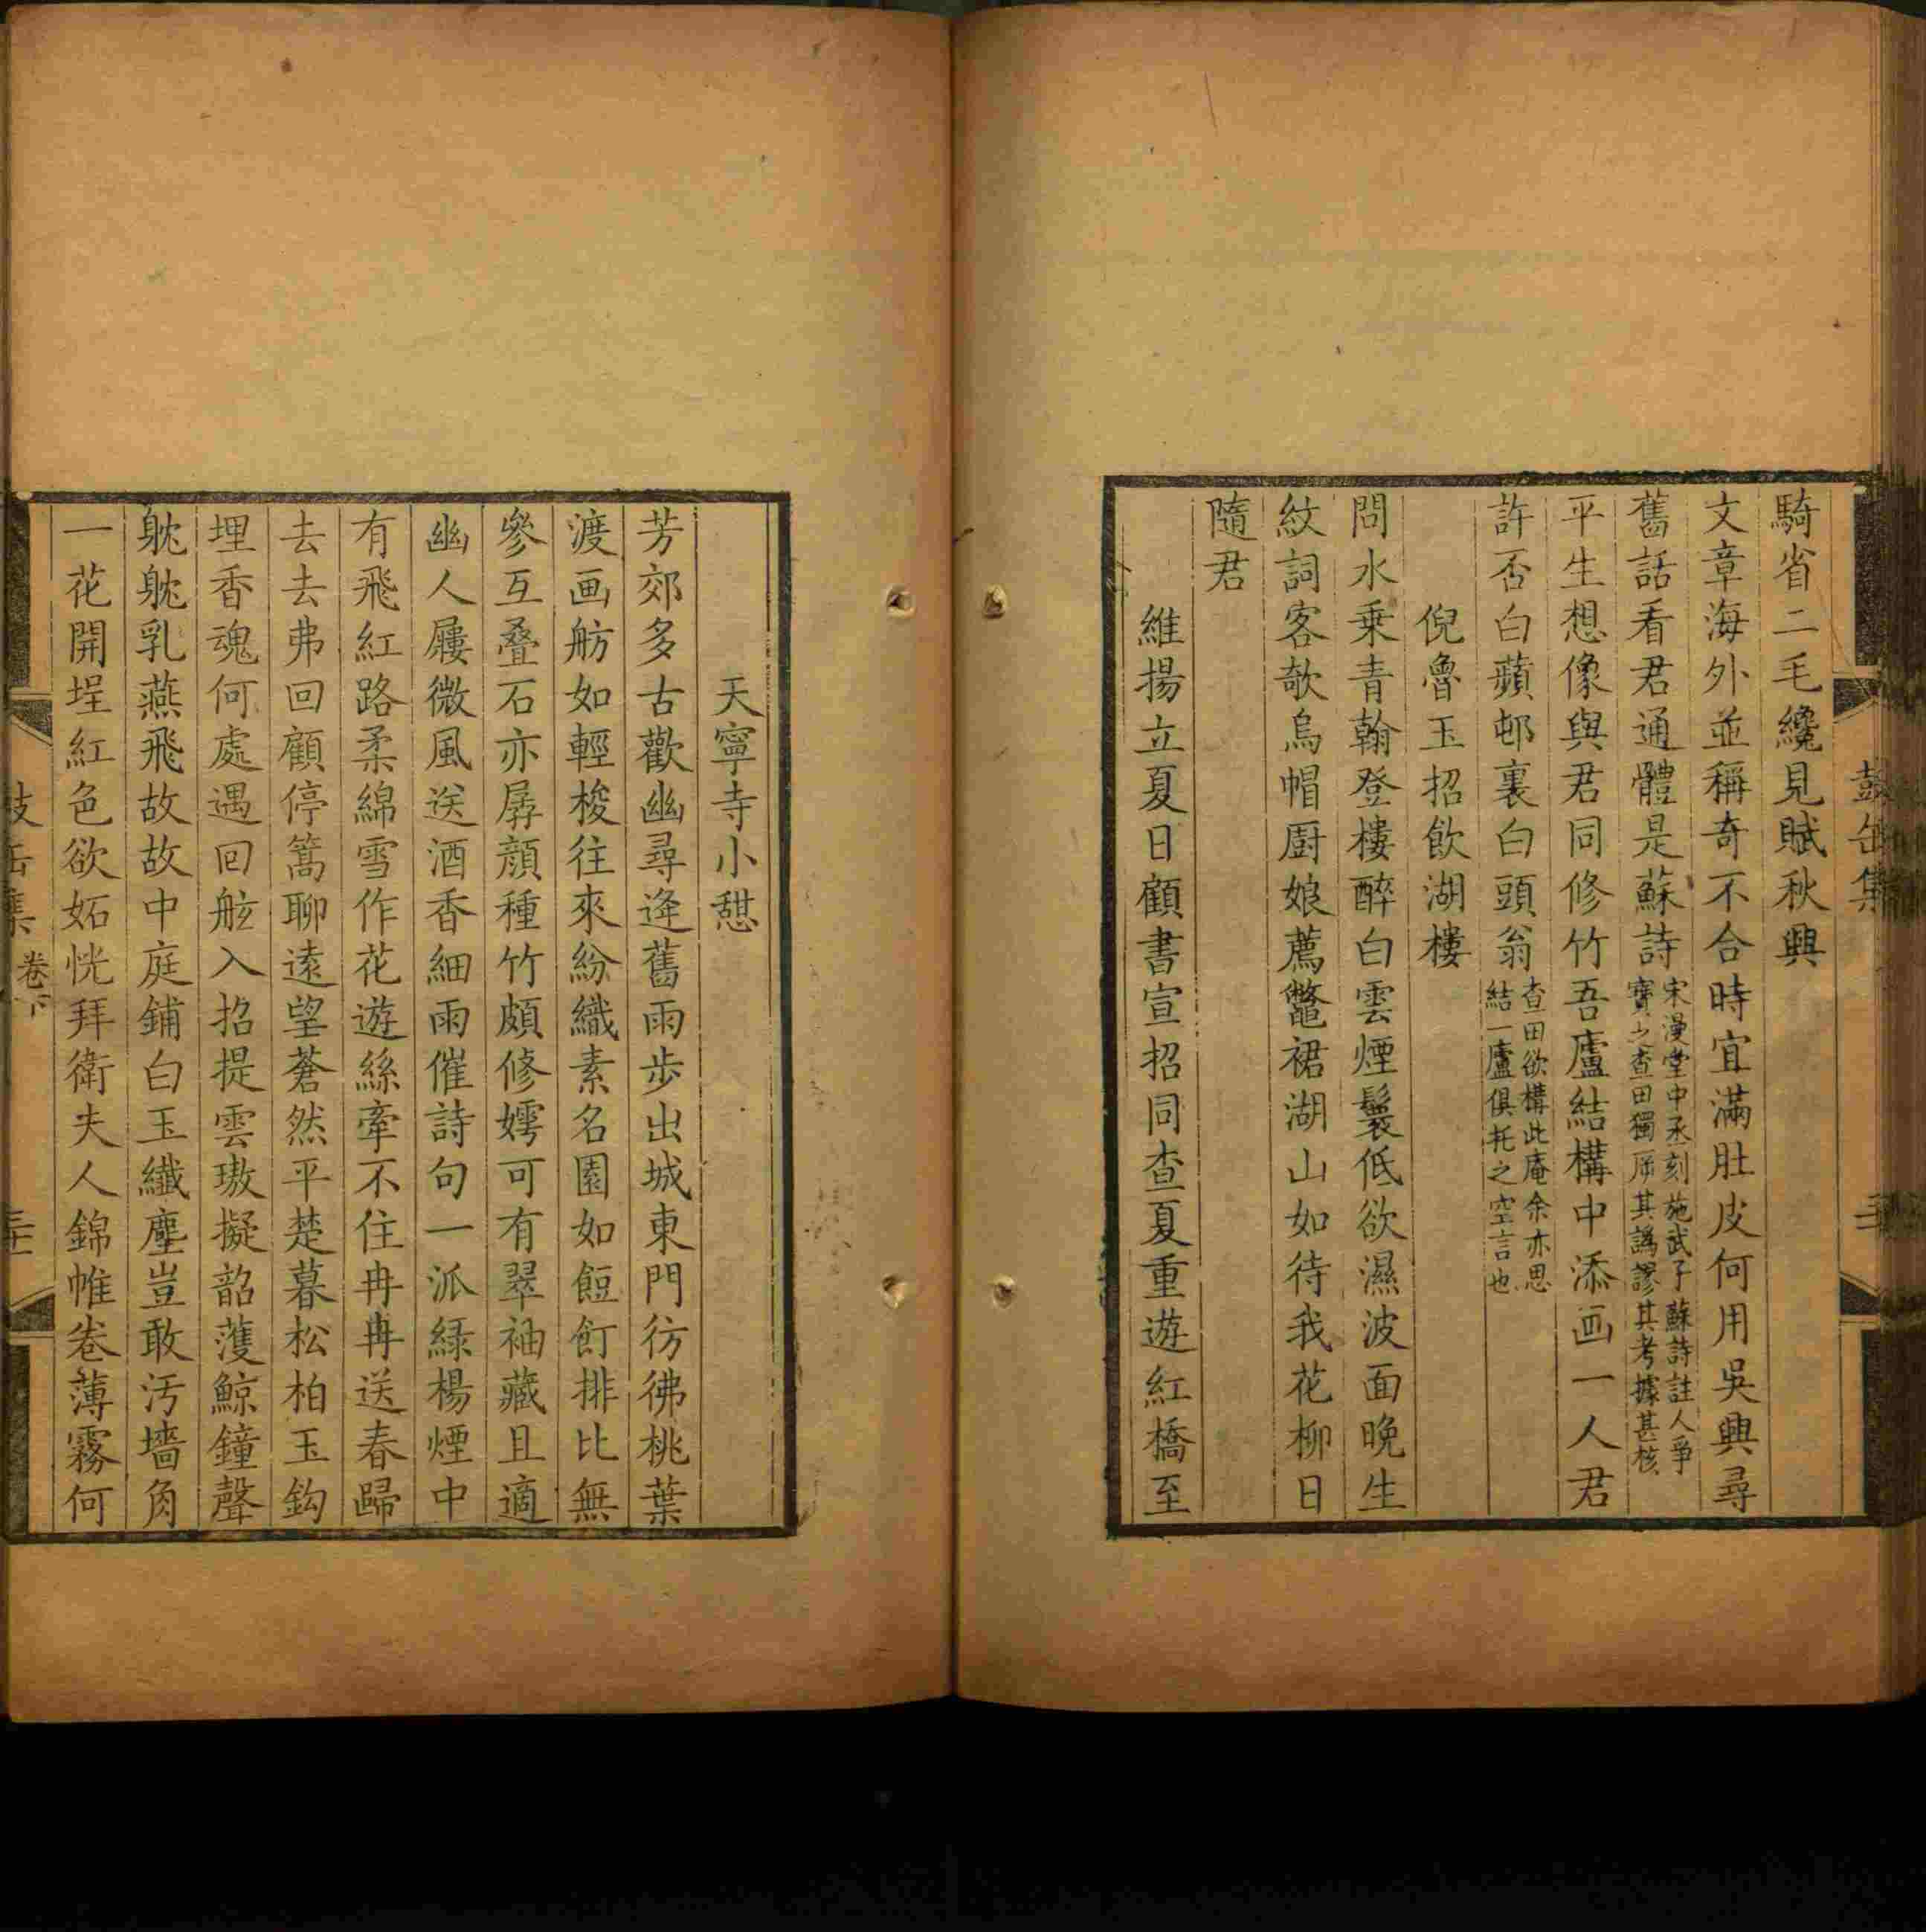 騎省二毛纔見賦秋興
文章海外並稱奇不合時宜滿肚皮何用吳興尋
舊話看君通體是蘇詩宋漫堂中丞刻施武子蘇詩註人爭
寶之查田獨斥其譌謬其考據甚核
平生想像與君同修竹吾廬結構中添画一人君
許否白蘋邨裏白頭翁查田欲構此庵余亦思
結一廬俱托之空言也
倪魯玉招飲湖樓
問水乗青翰登樓醉白雲煙鬟低欲濕波面晚生
紋詞客欹烏帽厨娘薦鼈裙湖山如待我花柳日
隨君
維揚立夏日顧書宣招同查夏重遊紅橋至
天寧寺小憇
芳郊多古歡幽尋逄舊雨步出城東門彷彿桃葉
渡画舫如輕梭往來紛織素名園如餖飣排比無
參互叠石亦孱顏種竹頗修嫮可有翠袖藏且適
幽人屨微風送酒香細雨催詩句一派緑楊煙中
有飛紅路柔綿雪作花遊絲牽不住冉冉送春歸
去去弗回顧停篙聊遠望蒼然平楚暮松柏玉鈎
埋香魂何處遇回舷入招提雲璈擬韶頀鯨鐘聲
躭躭乳燕飛故故中庭鋪白玉纖塵豈敢汚墻角
一花開埕紅色欲妬恍拜衛夫人錦帷卷薄霧何
缶集 卷下